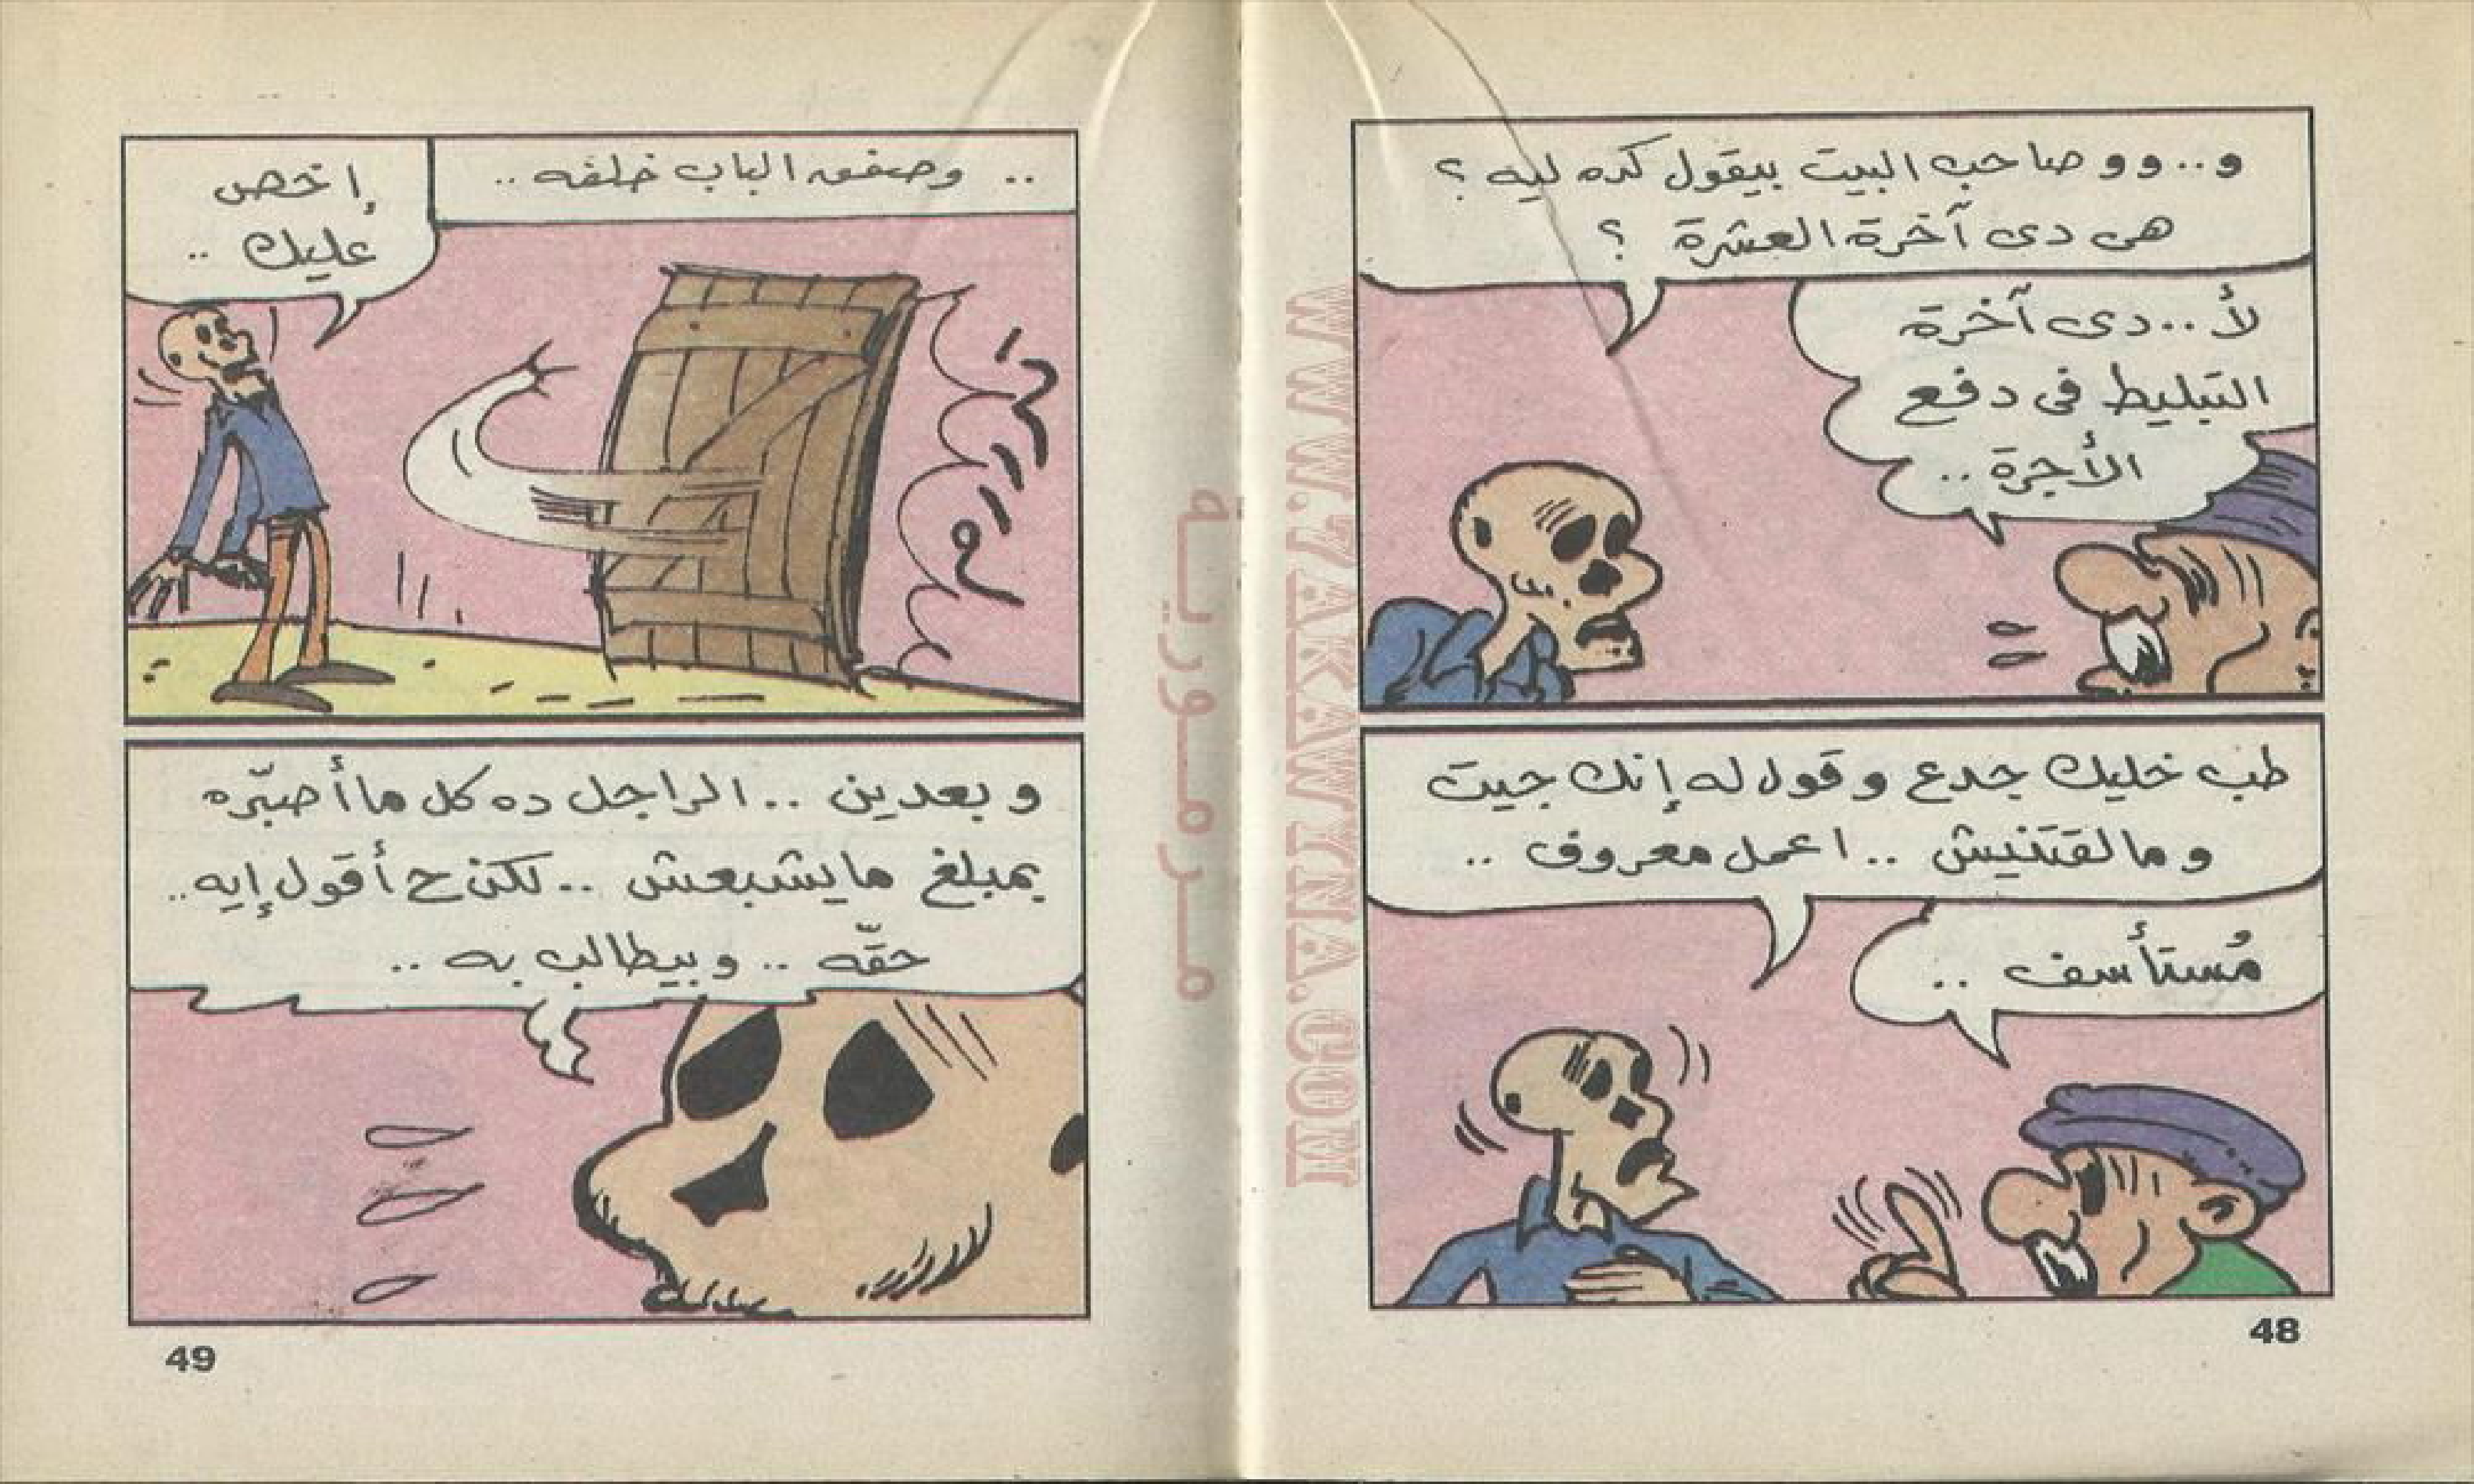 و..وو صاحب البيت بيقول كده ليه ؟
هى دى آخرة العشرة ؟
لأ..دى آخرة
التبليط فى دفع
الأجرة ..
طب خليك جدع وقول له إنك جيت
وما لقتنيش .. اعمل معروف ..
مُستأسف ..
48
.. وصفق الباب خلفه ..
إخص
عليك ..
وبعدين .. الراجل ده كل ما أصبّره
بمبلغ مايشبعش .. لكن ح أقول إيه..
حقّه .. وبيطالب به ..
49